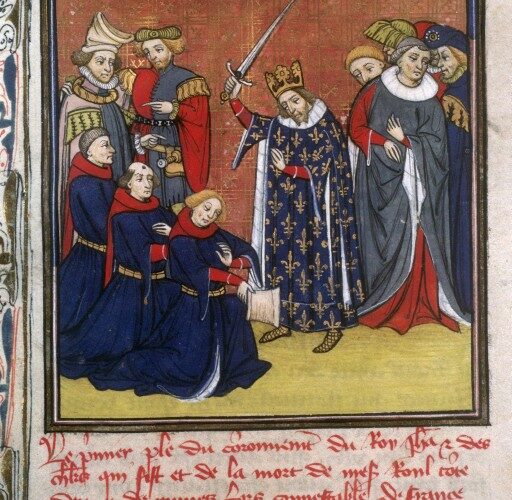 Le pmier ple du coronement du Roy Jhã & des
chlrs qui fist et de la mort de mesͬ Roul cõte
lors connestable de france